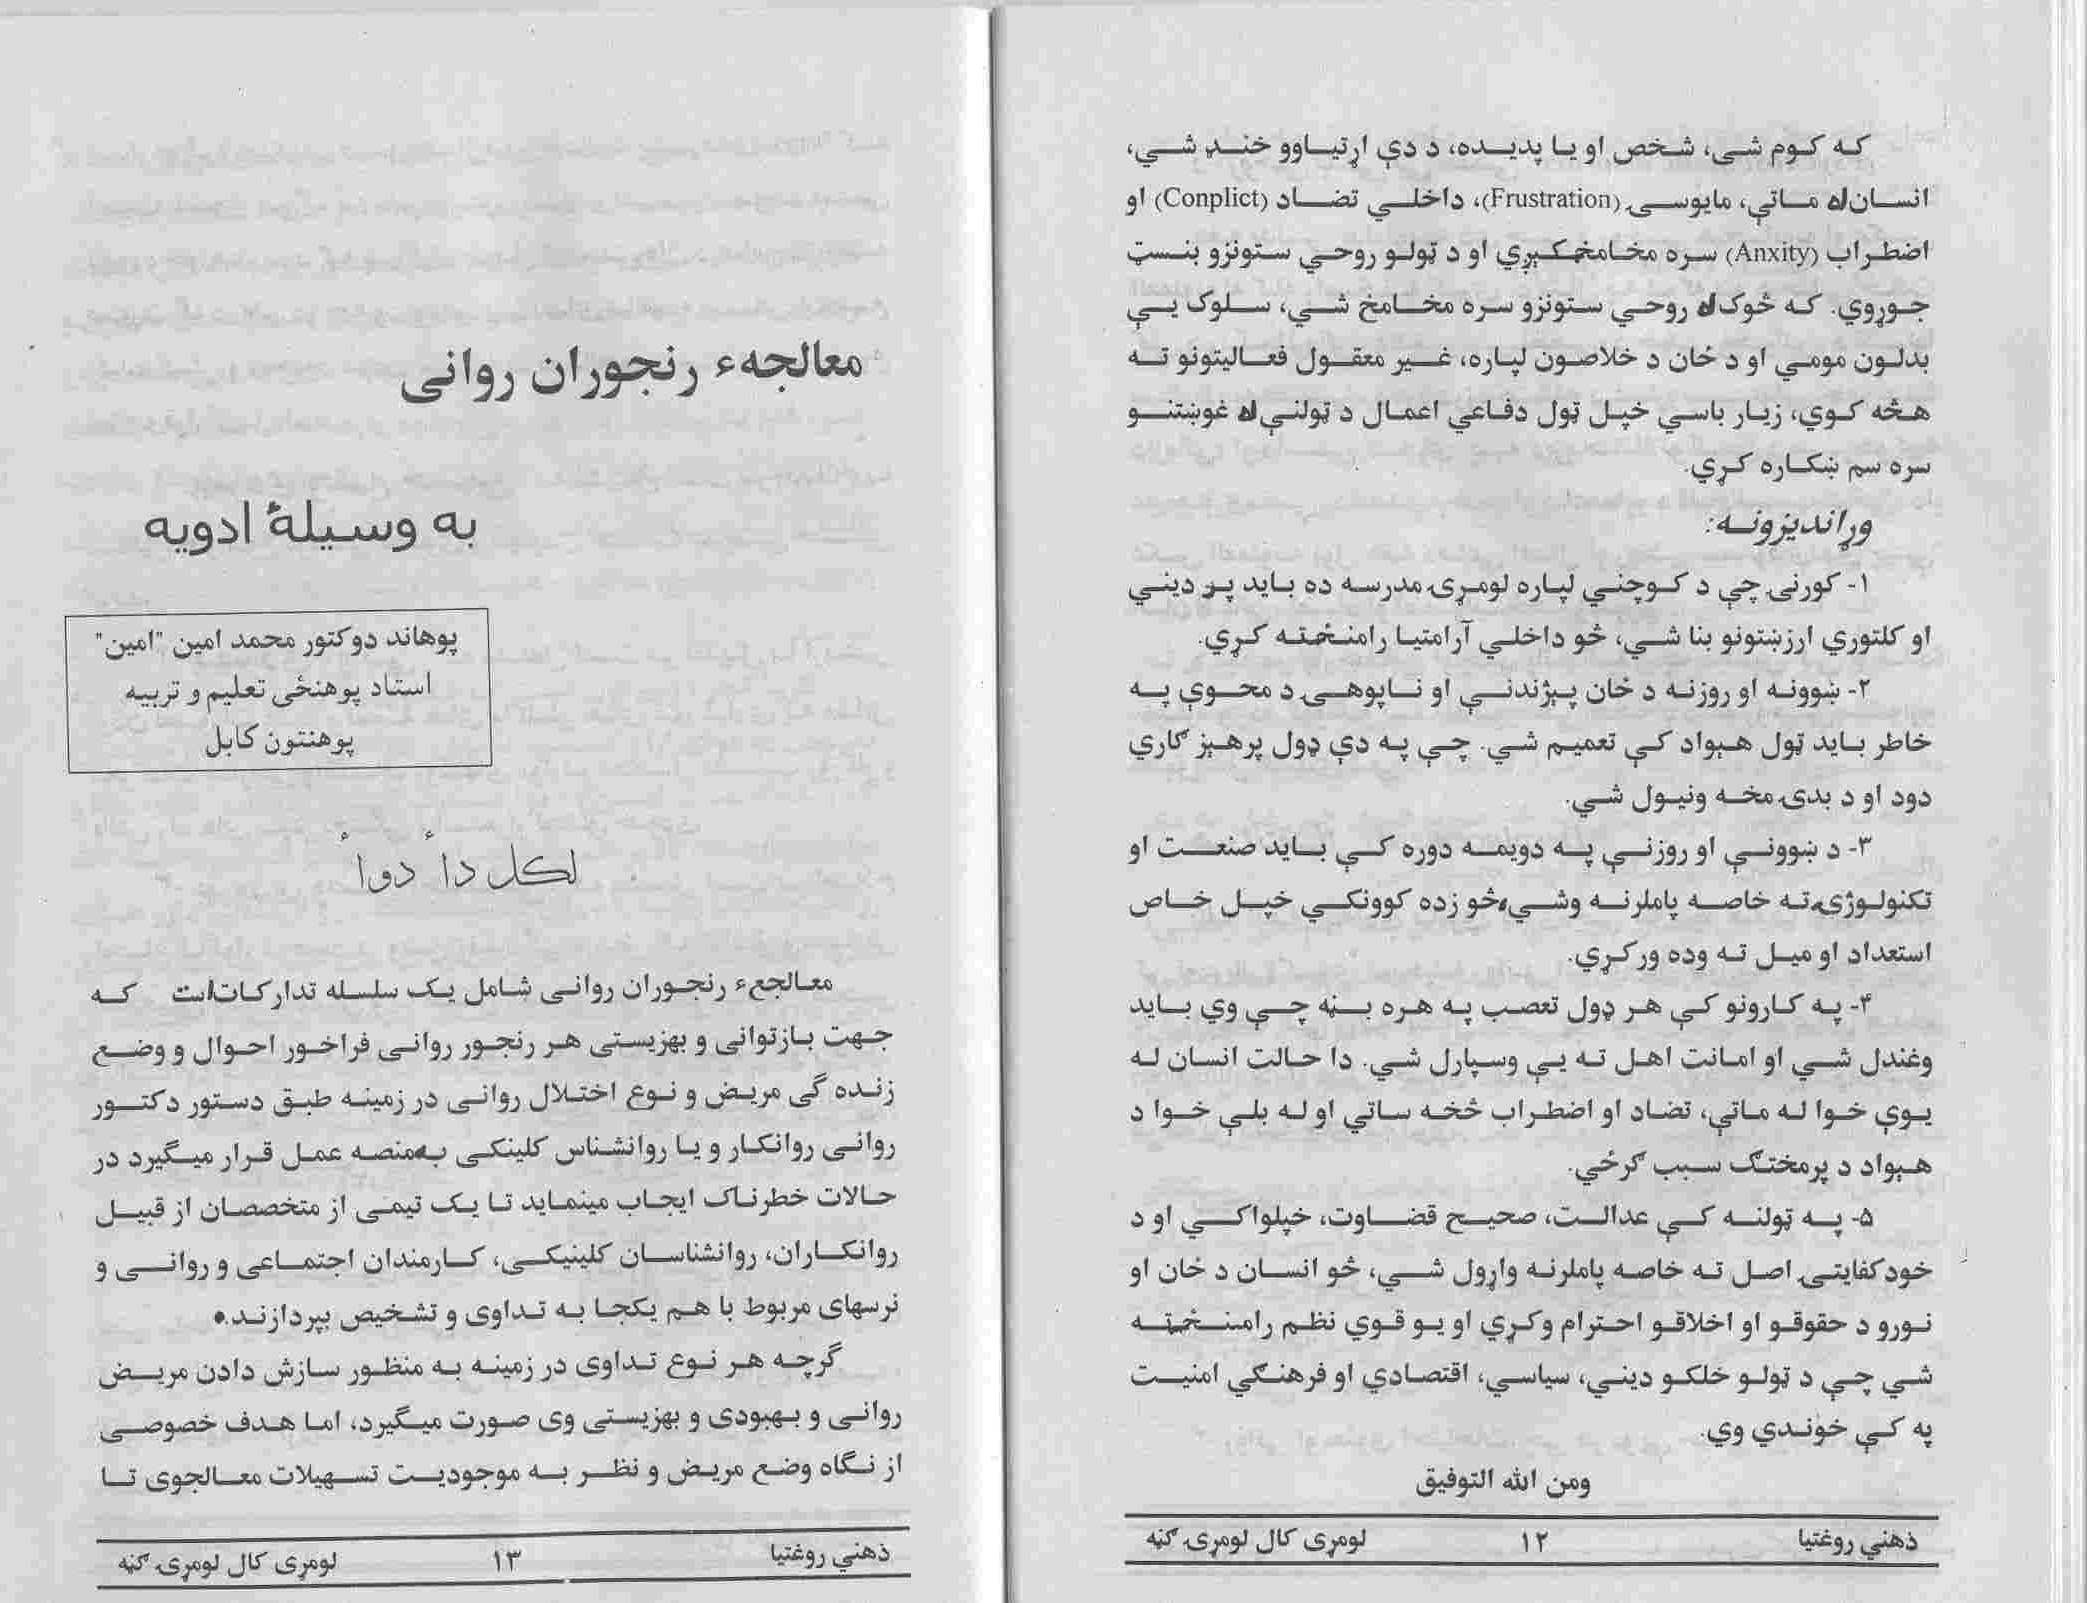 که کوم شی، شخص او يا پديده، د دې اړتياوو خنډ شي،
انسان له ماتې، مايوسۍ (Frustration)، داخلي تضاد (Conplict) او
اضطراب (Anxity) سره مخامخکېږي او د ټولو روحي ستونزو بنسټ
جوړوي. که څوک له روحي ستونزو سره مخامخ شي، سلوک يې
بدلون مومي او د ځان د خلاصون لپاره، غير معقول فعاليتونو ته
هڅه کوي، زيار باسي خپل ټول دفاعي اعمال د ټولنې له غوښتنو
سره سم ښکاره کړي.
وړاندیزونه:
۱- کورنۍ چې د کوچني لپاره لومړۍ مدرسه ده بايد پر ديني
او کلتوري ارزښتونو بنا شي، څو داخلي آرامتيا رامنځته کړي.
۲- ښوونه او روزنه د ځان پېژندنې او ناپوهۍ د محوې په
خاطر بايد ټول هېواد کې تعميم شي. چې په دې ډول پرهېز ګاري
دود او د بدۍ مخه ونيول شي.
۳- د ښوونې او روزنې په دويمه دوره کې بايد صنعت او
تکنولوژۍ ته خاصه پاملرنه وشي، څو زده کوونکي خپل خاص
استعداد او ميل ته وده ورکړي.
۴- په کارونو کې هر ډول تعصب په هره بڼه چې وي بايد
وغندل شي او امانت اهل ته يې وسپارل شي. دا حالت انسان له
يوې خوا له ماتې، تضاد او اضطراب څخه ساتي او له بلې خوا د
هېواد د پرمختګ سبب ګرځي.
۵- په ټولنه کې عدالت، صحيح قضاوت، خپلواکي او د
خودکفايتۍ اصل ته خاصه پاملرنه واړول شي، څو انسان د ځان او
نورو د حقوقو او اخلاقو احترام وکړي او يو قوي نظم رامنځته
شي چې د ټولو خلکو ديني، سياسي، اقتصادي او فرهنګي امنيت
په کې خوندي وي.
ومن الله التوفيق
ذهني روغتيا ۱۲ لومړی کال لومړۍ ګڼه
معالجهء رنجوران روانی
به وسیلهٔ ادویه
پوهاند دوکتور محمد امین "امین"
استاد پوهنځی تعلیم و تربیه
پوهنتون کابل
لکل داءٌ دواءٌ
معالجعء رنجوران روانی شامل یک سلسله تدارکات است که
جهت بازتوانی و بهزیستی هر رنجور روانی فراخور احوال و وضع
زنده گی مریض و نوع اختلال روانی در زمینه طبق دستور دکتور
روانی روانکار و یا روانشناس کلینکی به منصه عمل قرار میگیرد در
حالات خطرناک ایجاب مینماید تا یک تیمی از متخصصان از قبیل
روانکاران، روانشناسان کلینیکی، کارمندان اجتماعی و روانی و
نرسهای مربوط با هم یکجا به تداوی و تشخیص بپردازند.
گرچه هر نوع تداوی در زمینه به منظور سازش دادن مریض
روانی و بهبودی و بهزیستی وی صورت میگیرد، اما هدف خصوصی
از نگاه وضع مریض و نظر به موجودیت تسهیلات معالجوی تا
ذهني روغتيا ۱۳ لومړی کال لومړۍ ګڼه